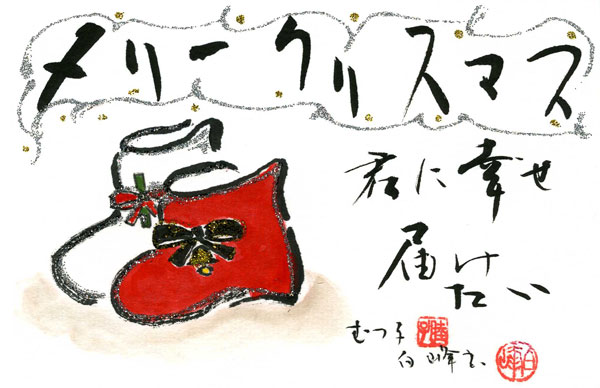 メリークリスマス
君に幸せ
届けたい
むつ子
白峰